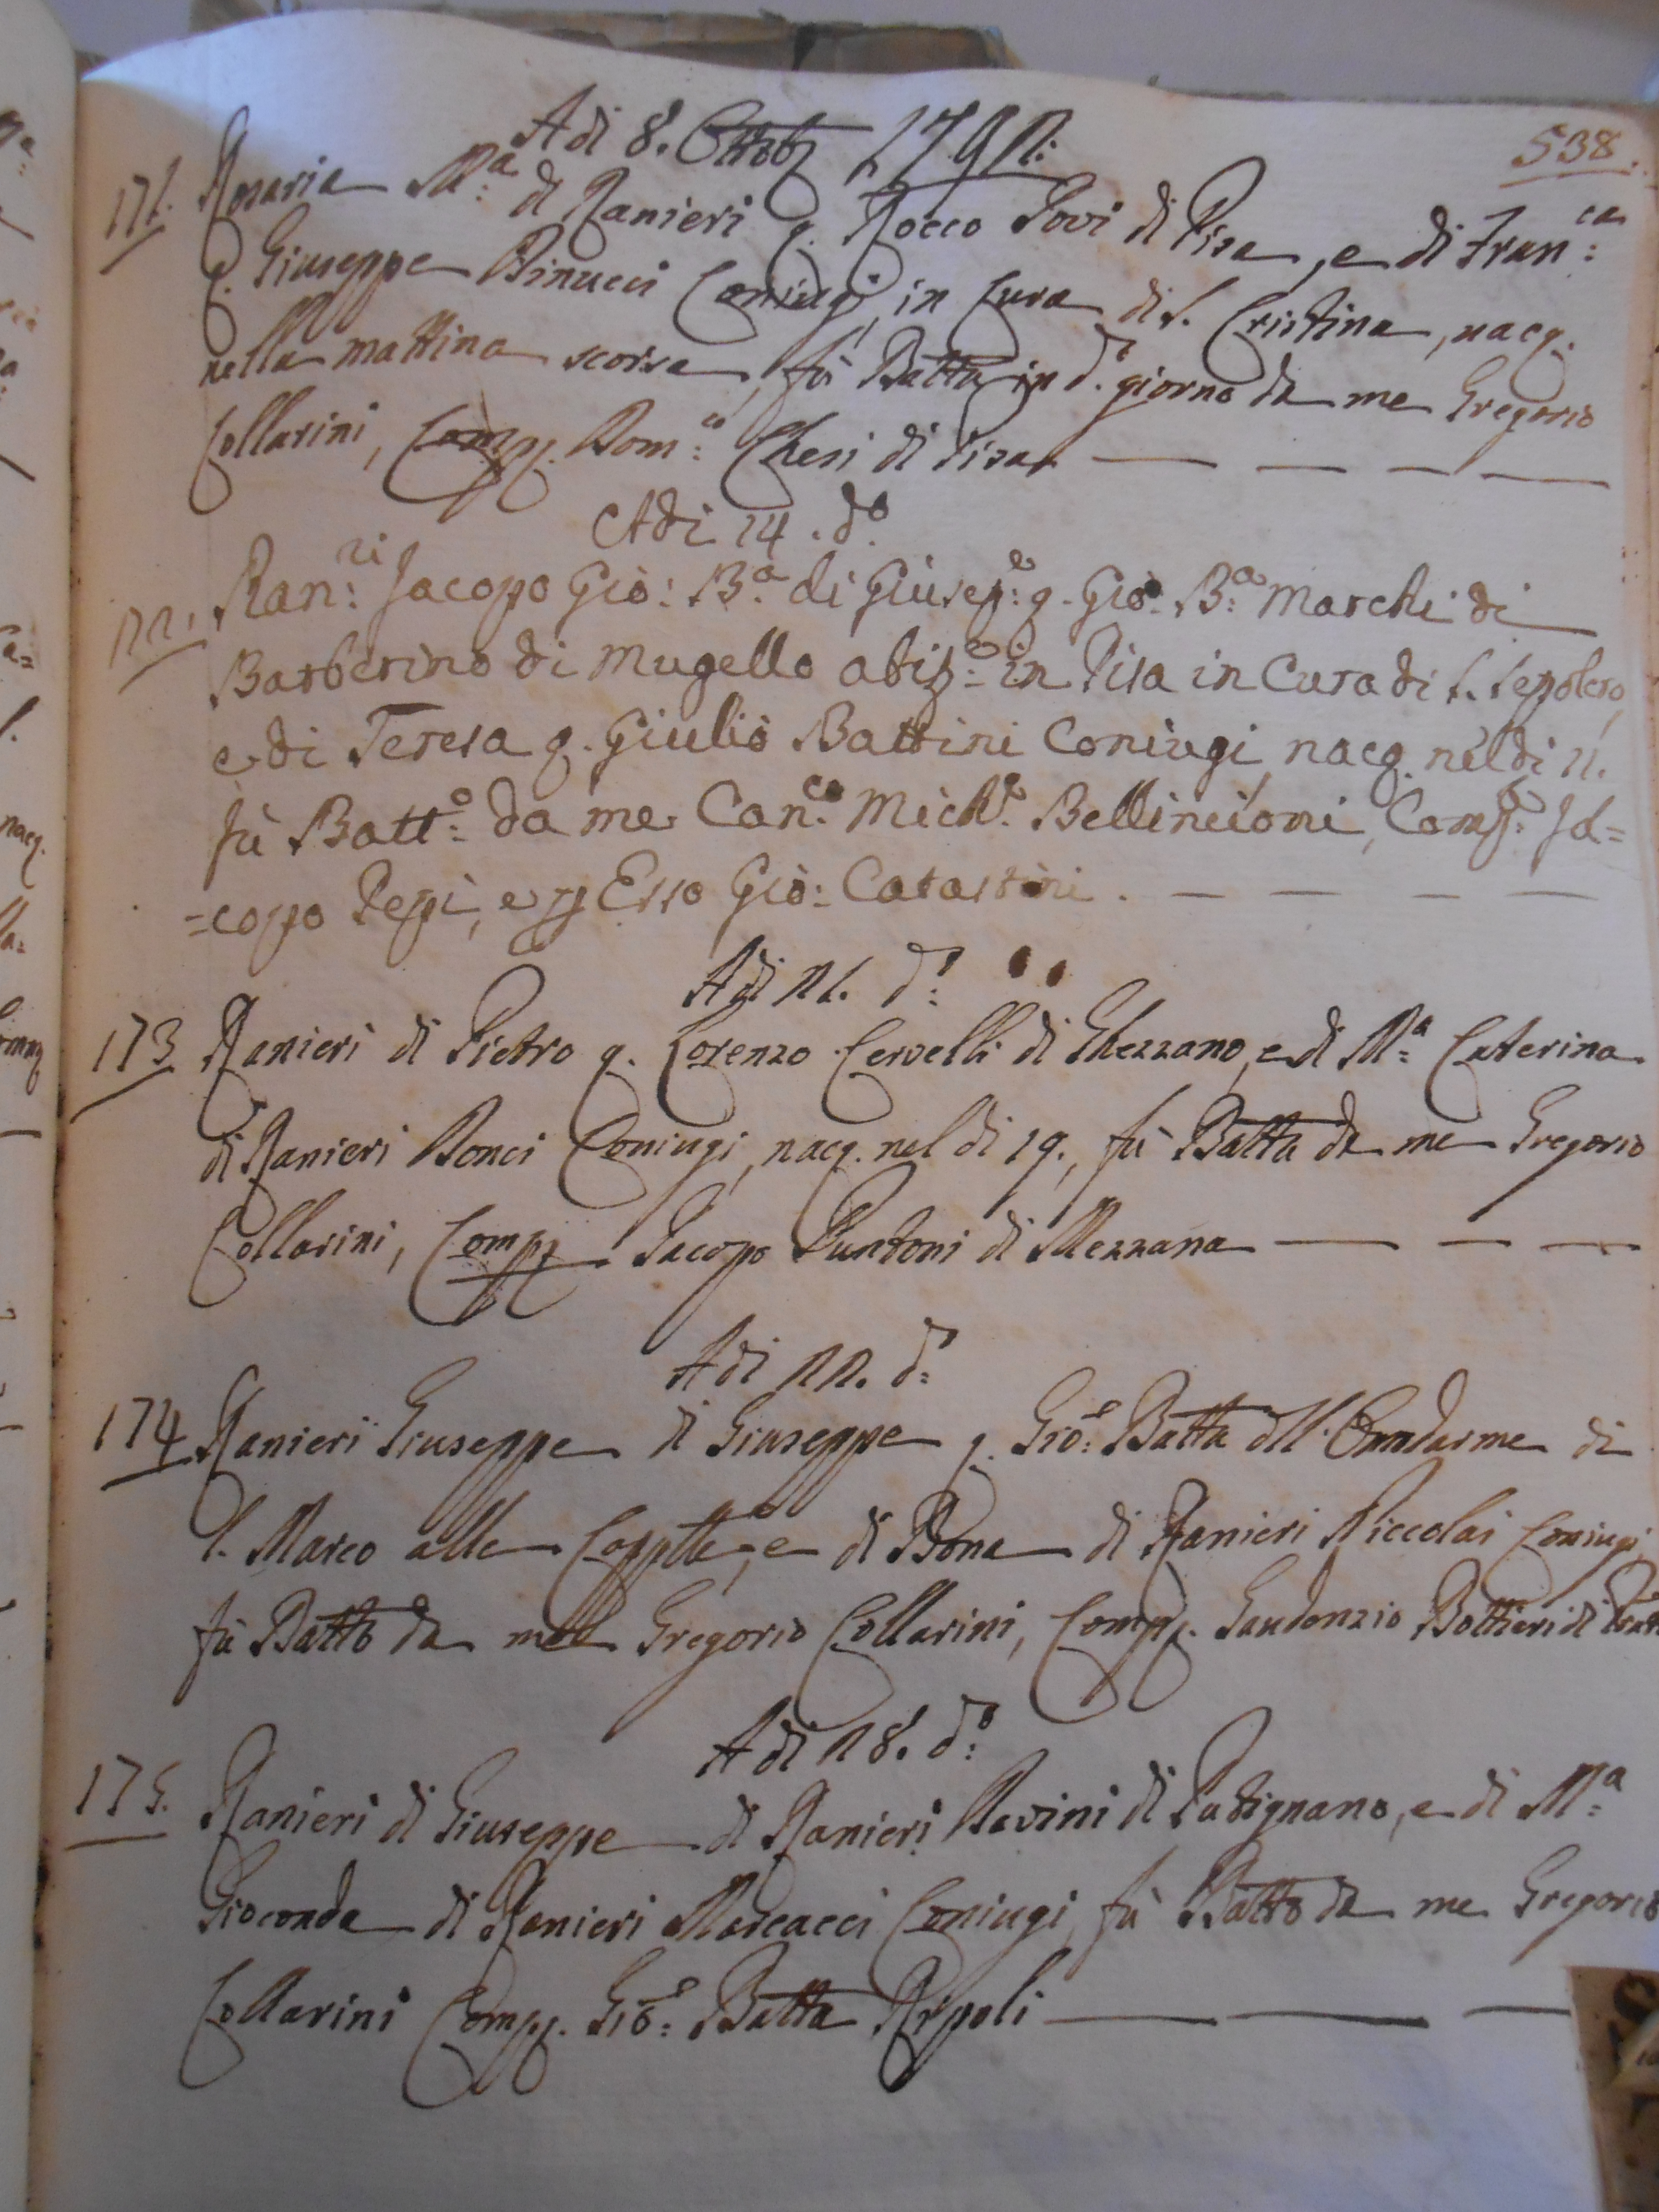 538.
Adi 8. Ottob 1792:
171. Rosaria Mª: di Ranieri q. Rocco Povi di Pisa, e di Franca:
q. Giuseppe Binucci Coniugi, in Cura di S. Cristina, nacq.
nella mattina scorsa, fù Batta in d: giorno da me Gregorio
Collarini, Comp. Domco: Chesi di Pisa
Adi 14. do:
172. Ranri: Jacopo Gio: Ba: di Giusepe: q. Gio: Ba: Marchi di
Barberino di Mugello abite: in Pisa in Cura di S. Sepolcro,
e di Teresa q. Giulio Battini Coniugi, nacq. nel dì 11.
fù Batto: da me Canco: Miche: Bellincioni, Compe: Ja=
=copo Pepi, e p Esso Gio: Catastini.
Adi 21. do:
173 Ranieri di Pietro q. Lorenzo Cervelli di Ghezzano, e di Mª= Caterina
di Ranieri Bonci Coniugi, nacq. nel di 19., fù Batta da me Gregorio
Collarini, Comp. Jacopo Puntoni di Mezzana
Adi 22. do:
174 Ranieri Giuseppe di Giuseppe q. Gio: Batta dll' Omdarme di
S. Marco alle Cappelle, e di Bona di Ranieri Niccolai Coniugi
fù Batto da me Gregorio Collarini, Comp. Gaudenzio Bottieri di
Adi 28. do:
175. Ranieri di Giuseppe di Ranieri di Putignano, e di Mª=
Gioconda di Ranieri Marcacci Coniugi, fù Batto da me Gregorio
Collarini Comp. Gio: Batta Ripoli